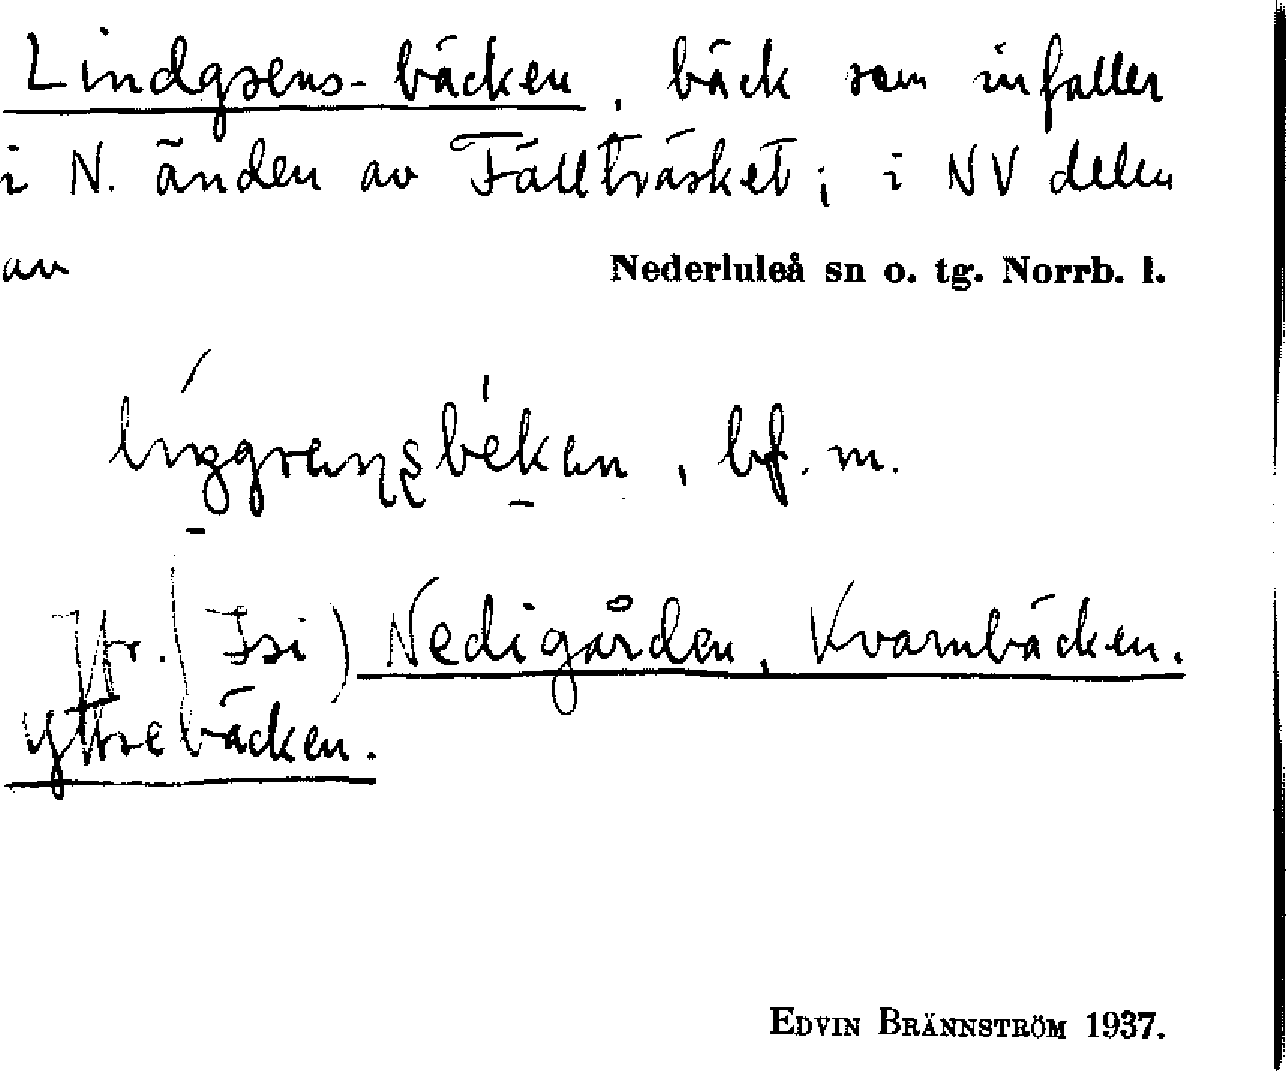 Lindgrens-bäcken, bäck som infaller
i N. änden av Fällträsket; i NV delen
av Nederluleå sn o. tg. Norrb. l.
bf. m.
Jfr. (Isi) Nedigården, Kvarnbäcken.
yttrebäcken.
EDVIN BRÄNNSTRÖM 1937.